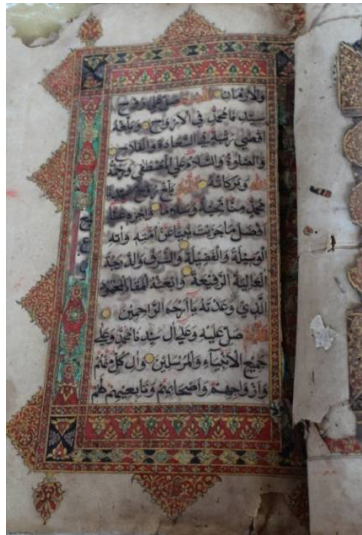 والازمان اللهم صل على روح
سيدنا محمد في الارواح وبلغه
اقصى رتبة السعادة والفلاح
والصلوة والسلام على المصطفى ورحمة
الله وبركاته اللهم بلغ روح
محمد منا تحية وسلاما واجزه عنا
افضل ما جزيت نبيا عن امته وآته
الوسيلة والفضيلة والشرف والدرجة
العالية الرفيعة وابعثه المقام المحمود
الذي وعدته يا ارحم الراحمين
اللهم صل عليه وعلى آل سيدنا محمد وعلى
جميع الانبياء والمرسلين وآل كل منهم
وازواجهم واصحابهم وتابعيهم لهم